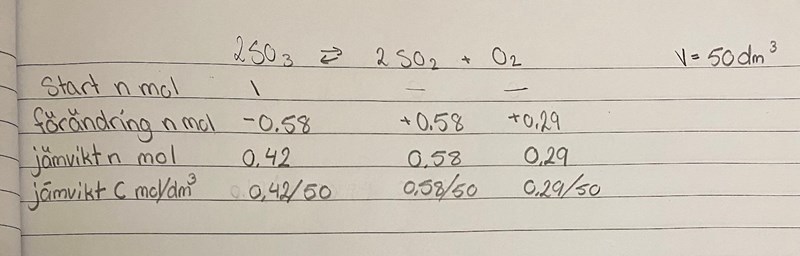 2SO₃ ⇄ 2SO₂ + O₂ V = 50 dm³
Start n mol 1 — —
förändring n mol -0.58 +0.58 +0.29
jämvikt n mol 0,42 0,58 0,29
jämvikt C mol/dm³ 0,42/50 0,58/50 0,29/50